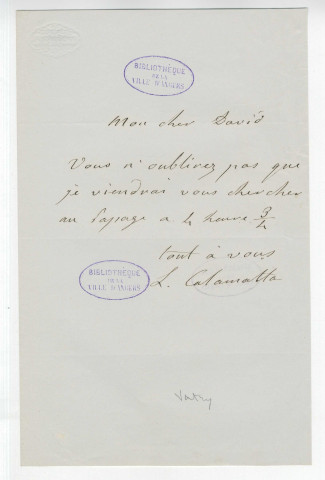 BIBLIOTHÈQUE
DE LA
VILLE D'ANGERS
Mon cher David
Vous n'oublirez pas que
je viendrai vous chercher
au passage a 4 heure 3/4
tout à vous
L. Calamatta
BIBLIOTHÈQUE
DE LA
VILLE D'ANGERS